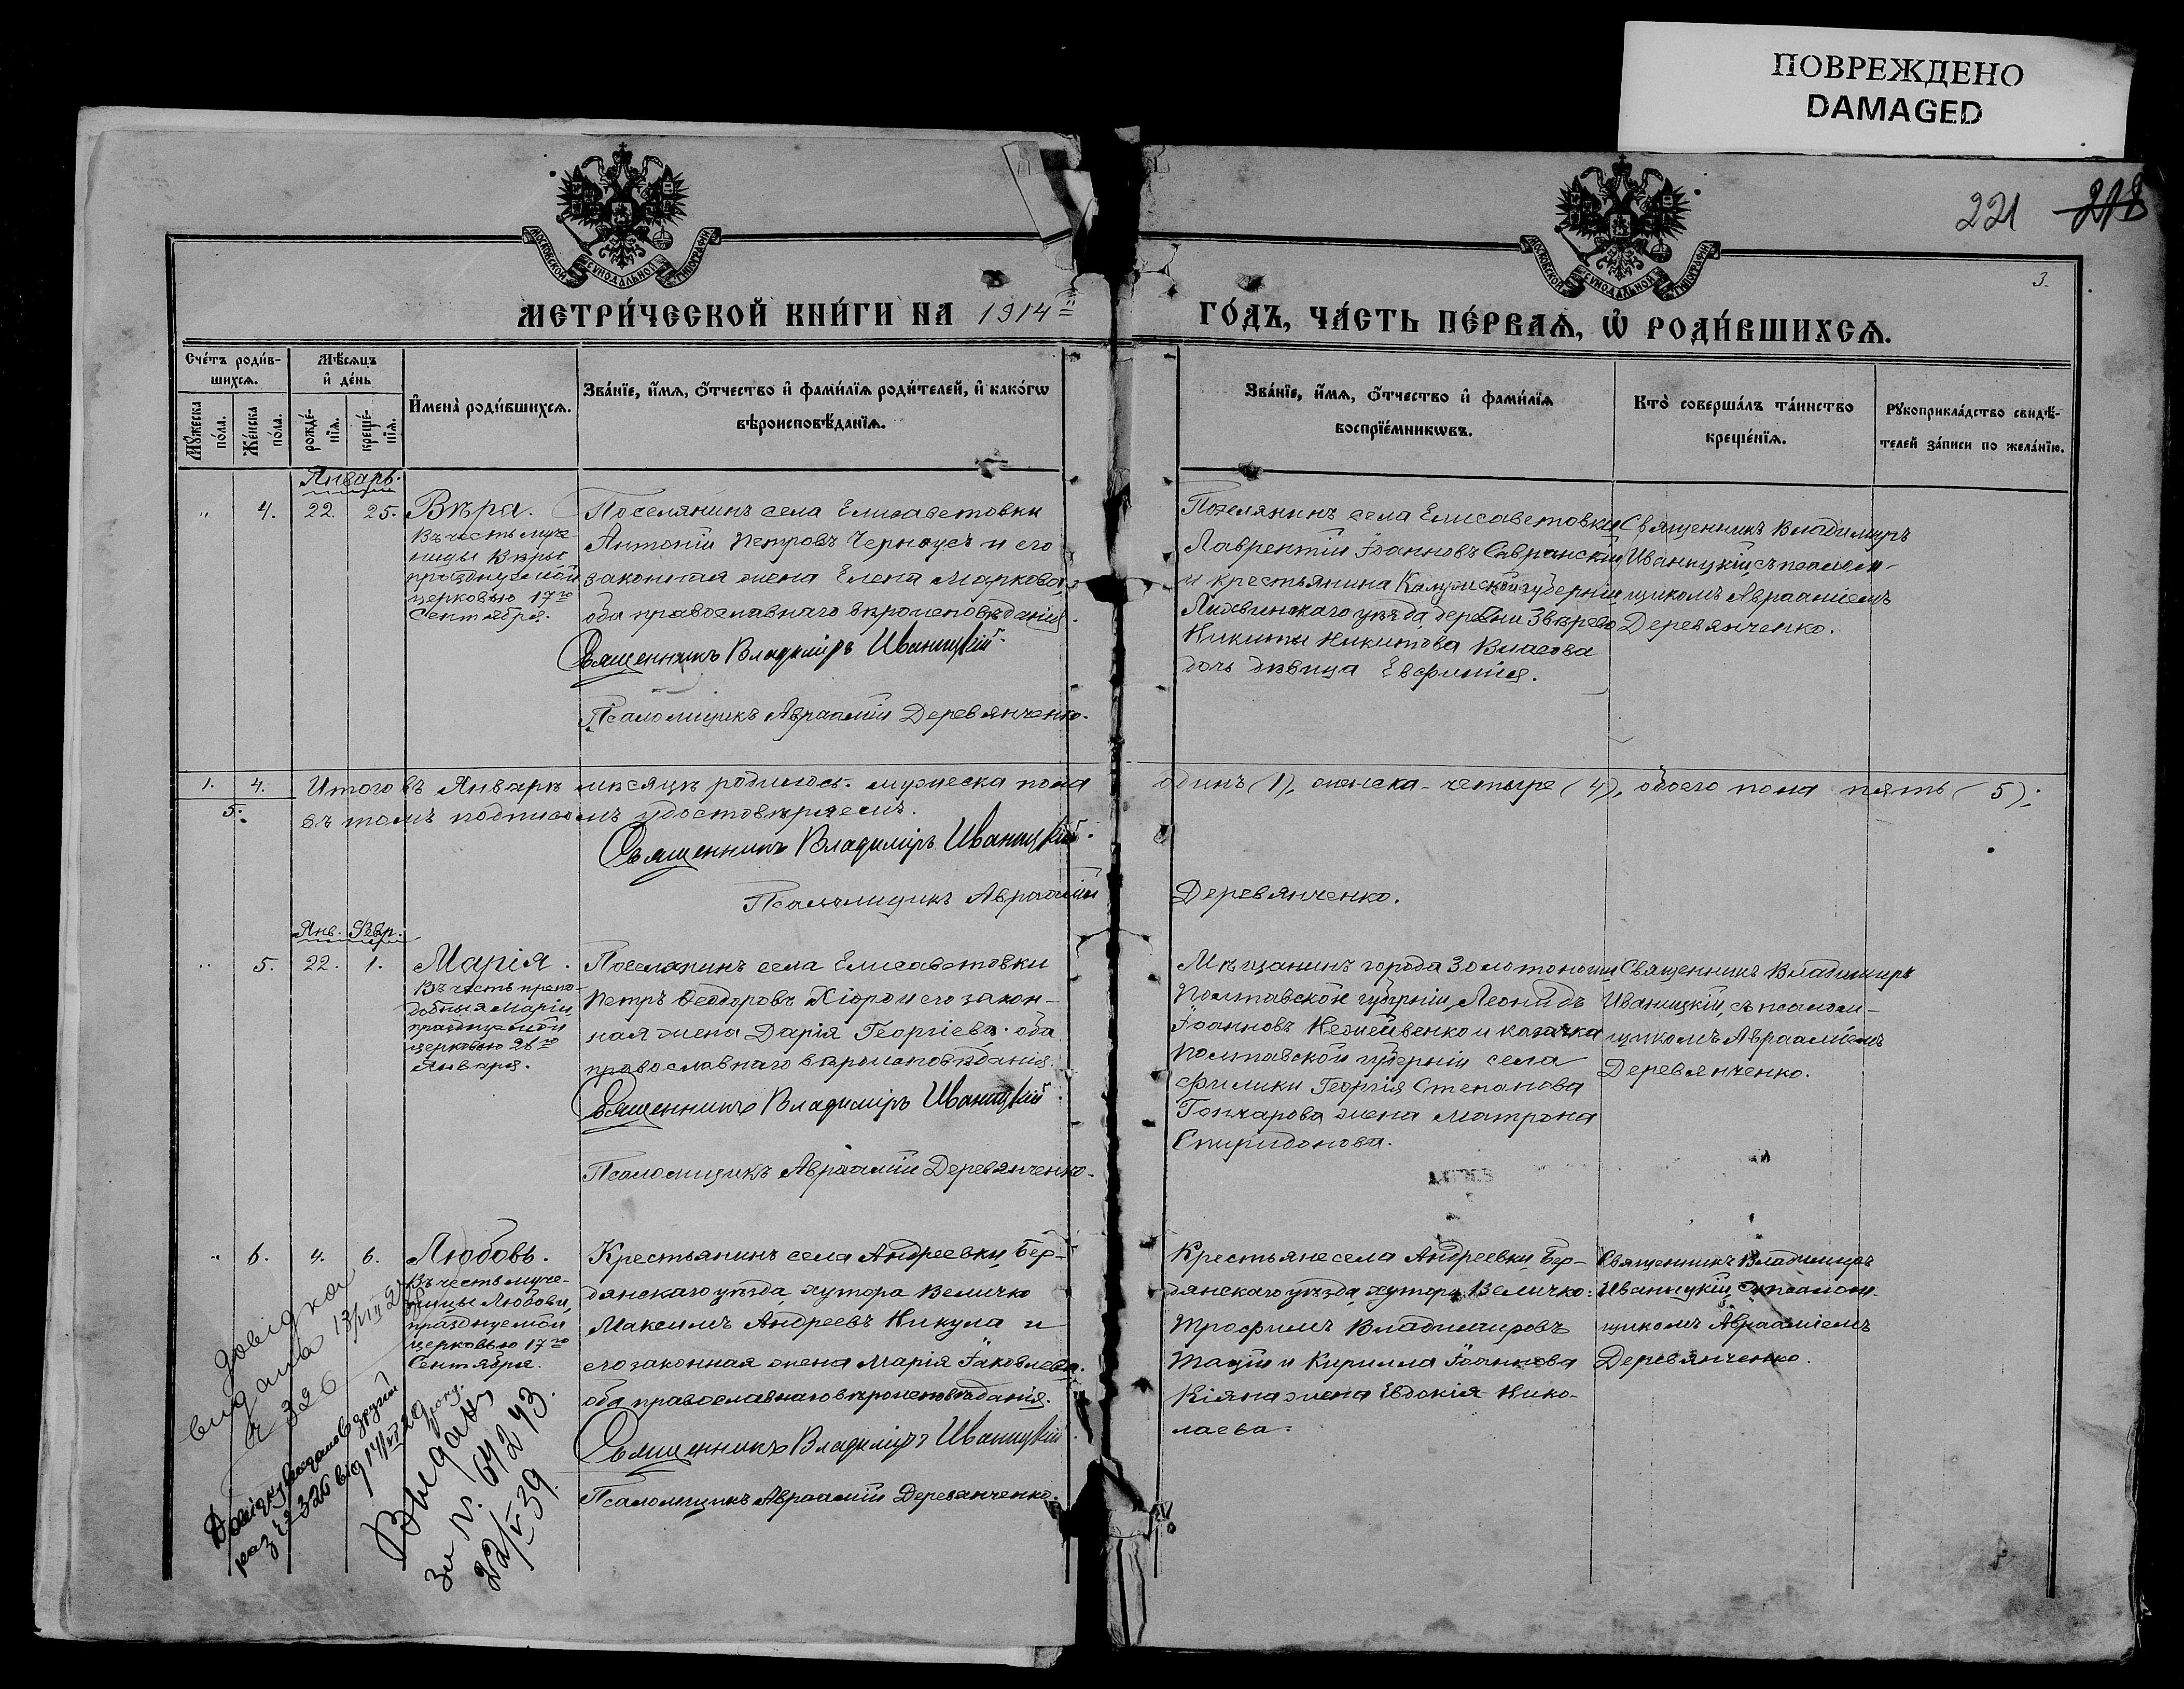 ПОВРЕЖДЕНО
DAMAGED
221 218
3.
МОСКОВСКОЙ СѴНОДАЛЬНОЙ ТИПОГРАФІИ
МОСКОВСКОЙ СѴНОДАЛЬНОЙ ТИПОГРАФІИ
МЕТРИ́ЧЕСКОЙ КНИ́ГИ НА 1914й ГО́ДЪ, ЧА́СТЬ ПЕ́РВАѦ, Ѽ РОДИ́ВШИХСѦ.
Сче́тъ роди́в-
шихсѧ.
Мѣ́сѧцъ
и҆ де́нь
Мꙋ́жеска
по́ла.
Же́нска
по́ла.
рожде́-
нїѧ.
креще́-
нїѧ.
И҆мена̀ роди́вшихсѧ.
Зва́нїе, и҆́мѧ, ѻ҆́тчество и҆ фами́лїѧ роди́телей, и҆ како́гѡ
вѣроисповѣ́данїѧ.
Зва́нїе, и҆́мѧ, ѻ҆́тчество и҆ фами́лїѧ
воспрїе́мникѡвъ.
Кто̀ соверша́лъ та́инство
креще́нїѧ.
Рꙋкоприкла́дство свидѣ́-
телей за́писи по жела́нїю.
Январь.
" 4. 22. 25. Вѣра.
Въ честь муче-
ницы Вѣры
празднуемой
церковью 17го
Сентября.
Поселянинъ села Елисаветовки
Антоній Петровъ Черноусъ и его
законная жена Елена Маркова,
оба православнаго вѣроисповѣданія.
Священникъ Владиміръ Иваницкій.
Псаломщикъ Авраамій Деревянченко.
Поселянинъ села Елисаветовки
Лаврентій Іоанновъ Савранскій
и крестьянина Калужской губерніи
Лихвинскаго уѣзда, деревни
Никиты Никитова Власова
дочь дѣвица Евфимія.
Священникъ Владимиръ
Иваницкій, съ псалом-
щикомъ Авраамiемъ
Деревянченко.
1. 4. Итого въ Январѣ мѣсяцѣ родилось. мужеска пола одинъ (1), женска - четыре (4), обоего пола пять (5);
5. въ томъ подписомъ удостовѣряемъ.
Священникъ Владиміръ Иваницкій.
Псаломщикъ Авраамій Деревянченко.
Янв. Февр.
" 5. 22. 1. Марія.
Въ честь препо-
добныя Маріи
празднуемой
церковью 26го
Января.
Поселянинъ села Елисаветовки
Петръ Ѳеодоровъ Хіоро и его закон-
ная жена Дарія Георгіева. оба
православнаго вѣроисповѣданія.
Священникъ Владиміръ Иваницкій.
Псаломщикъ Авраамій Деревянченко.
Мѣщанинъ города Золотоноши
Полтавской губерніи, Леонидъ
Іоанновъ и казачка
Полтавской губерніи села
Филики Георгія Степанова
Гончарова жена Матрона
Спиридонова.
Священникъ Владимиръ
Иваницкій, съ псалом-
щикомъ Авраамiемъ
Деревянченко.
" 6. 4. 6. Любовь.
Въ честь муче-
ницы Любови,
празднуемой
церковью 17го
Сентября.
Крестьянинъ села Андреевки, Бер-
дянскаго уѣзда, хутора Величко
Максимъ Андреевъ Никула и
его законная жена Марія Іаковлева.
оба православнаго вѣроисповѣданія.
Священникъ Владиміръ Иваницкій
Псаломщикъ Авраамій Деревянченко.
Крестьяне села Андреевки, Бер-
дянскаго уѣзда, хутора Величко:
Трофимъ Владимировъ
Тацій и Кирилла Іоаннова
Кіяна жена Евдокія Нико-
лаева.
Священникъ Владимиръ
Иваницкій, съ псалом-
щикомъ Авраамiемъ
Деревянченко.
довідка
видана 13/VII 2
№ 326
Довідку видано другий
раз № 326 від 17/VI 29
Выдан
за N. 64243.
22/V 39.